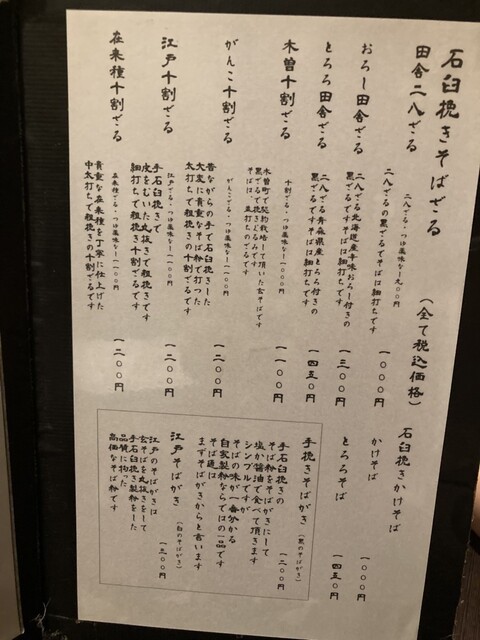 石臼挽きそばざる
(全て税込価格)
田舎二八ざる
二八ざる・つけ薬味なし九〇〇円
二八ざるの黒ざるでそばは細打ちです
一〇〇〇円
おろし田舎ざる
二八ざる北海道産辛味おろし付きの
黒ざるですそばは細打ちです
一三〇〇円
とろろ田舎ざる
二八ざる青森県産とろろ付きの
黒ざるですそばは細打ちです
一四五〇円
木曽十割ざる
十割ざる・つけ薬味なし一〇〇〇円
木曽町で契約栽培して頂いた玄そばです
一一〇〇円
がんこ十割ざる
がんこざる・つけ薬味なし一一〇〇円
昔ながらの手で石臼挽きした
大変に貴重なそば粉で打った
太打ちで粗挽きの十割ざるです
一二〇〇円
江戸十割ざる
江戸ざる・つけ薬味なし一一〇〇円
手石臼挽きで
皮をむいた丸抜きで粗挽きです
細打ちで粗挽き十割ざるです
一二〇〇円
在来種十割ざる
在来種ざる・つけ薬味なし一一〇〇円
貴重な在来種を丁寧に仕上げた
中太打ちで粗挽きの十割ざるです
一二〇〇円
石臼挽きかけそば
かけそば
一〇〇〇円
とろろそば
一四五〇円
手挽きそばがき(黒のそばがき)
一二〇〇円
手石臼挽きの
そば粉をそばがきにして
塩か醤油で食べて頂きます
シンプルですが
そばの味が一番分かる
自家製粉ならではの一品です
そば通は
まずそばがきからと言います
江戸そばがき(白のそばがき)
一三〇〇円
江戸のそばがきは
玄そばを丸抜きをして
手石臼挽き製粉をした
品質に拘った
高価なそば粉です